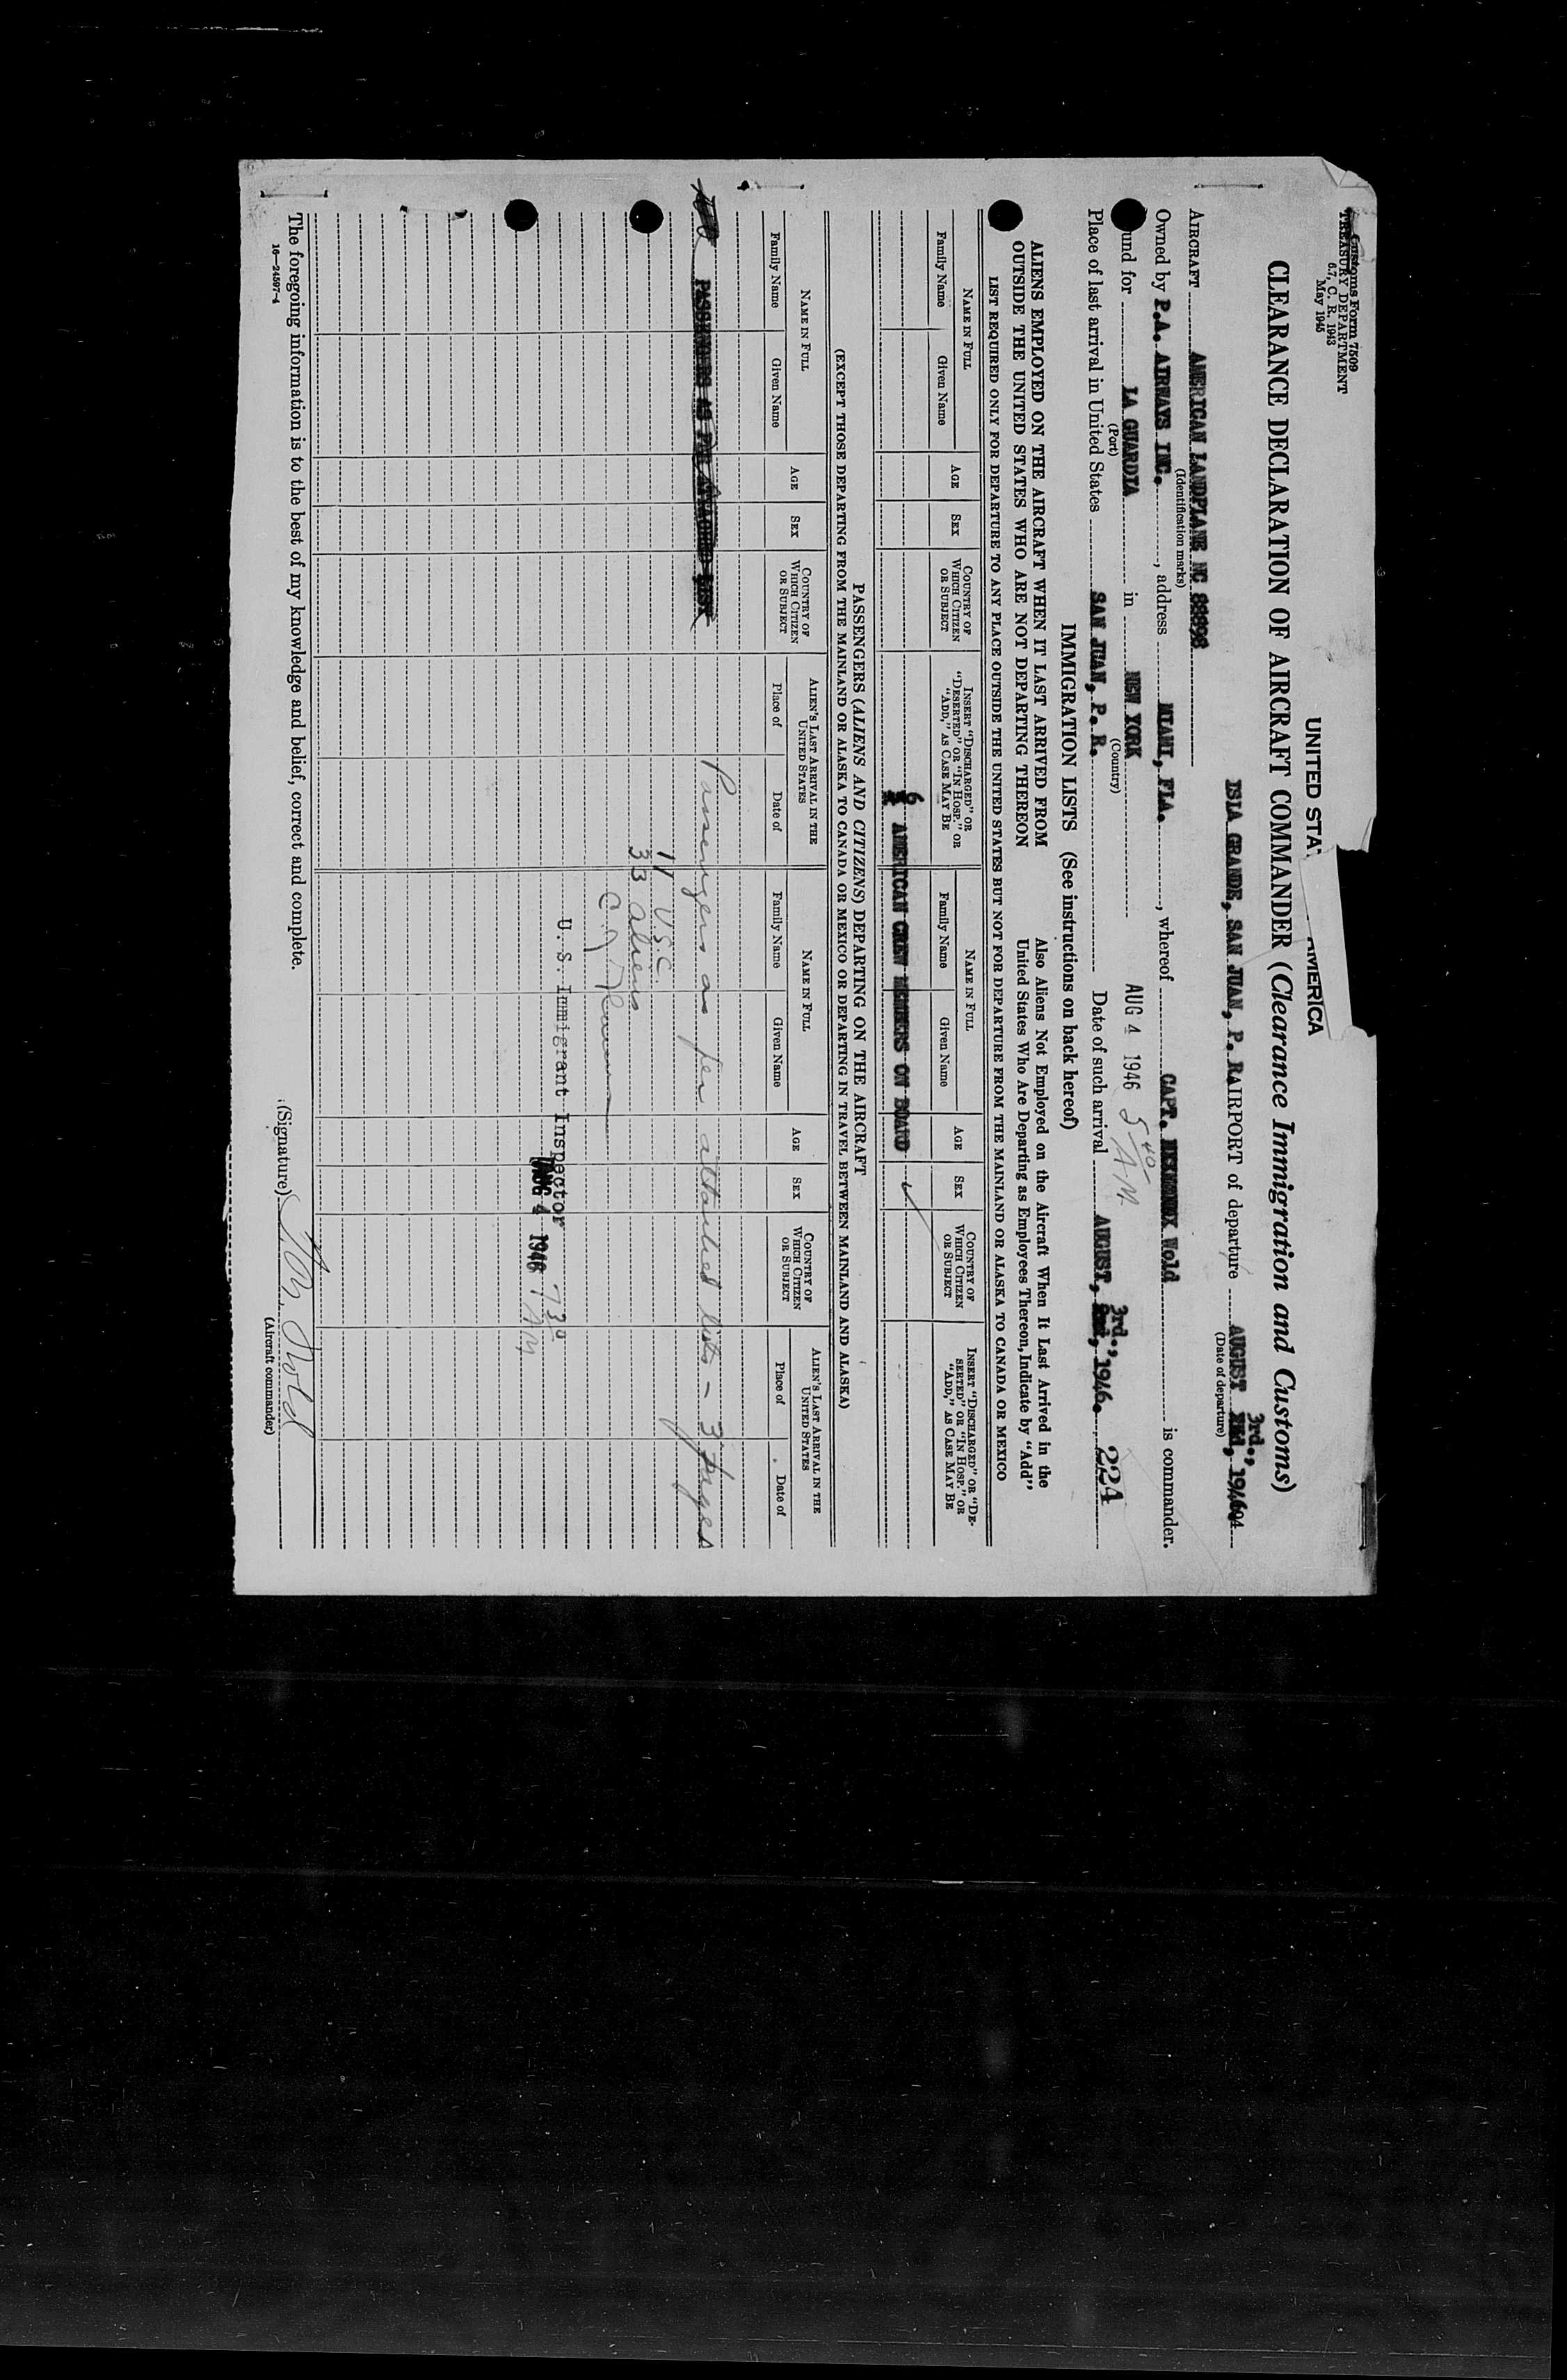 Customs Form 7509
TREASURY DEPARTMENT
6.7, C. R. 1943
May 1945
UNITED STA
AMERICA
CLEARANCE DECLARATION OF AIRCRAFT COMMANDER (Clearance Immigration and Customs)
ISLA GRANDE, SAN JUAN, P. R. AIRPORT of departure AUGUST 3rd., 1946
(Date of departure)
AIRCRAFT AMERICAN LANDPLANE NC
(Identification marks)
Owned by P.A. AIRWAYS INC., address MIAMI, FLA., whereof CAPT. Wold is commander.
und for LA GUARDIA in NEW YORK AUG 4 1946 5 40 AM
(Port) (Country)
Place of last arrival in United States SAN JUAN, P. R. Date of such arrival AUGUST, 3rd., 2nd, 1946. 224
IMMIGRATION LISTS (See instructions on back hereof)
ALIENS EMPLOYED ON THE AIRCRAFT WHEN IT LAST ARRIVED FROM
OUTSIDE THE UNITED STATES WHO ARE NOT DEPARTING THEREON
Also Aliens Not Employed on the Aircraft When It Last Arrived in the
United States Who Are Departing as Employees Thereon, Indicate by "Add"
LIST REQUIRED ONLY FOR DEPARTURE TO ANY PLACE OUTSIDE THE UNITED STATES BUT NOT FOR DEPARTURE FROM THE MAINLAND OR ALASKA TO CANADA OR MEXICO
NAME IN FULL
Family Name
Given Name
AGE
SEX
COUNTRY OF WHICH CITIZEN OR SUBJECT
INSERT "DISCHARGED" OR "DESERTED" OR "IN HOSP." OR "ADD," AS CASE MAY BE
NAME IN FULL
Family Name
Given Name
AGE
SEX
COUNTRY OF WHICH CITIZEN OR SUBJECT
INSERT "DISCHARGED" OR "DESERTED" OR "IN HOSP." OR "ADD," AS CASE MAY BE
6 AMERICAN CREW MEMBERS ON BOARD
PASSENGERS (ALIENS AND CITIZENS) DEPARTING ON THE AIRCRAFT
(EXCEPT THOSE DEPARTING FROM THE MAINLAND OR ALASKA TO CANADA OR MEXICO OR DEPARTING IN TRAVEL BETWEEN MAINLAND AND ALASKA)
NAME IN FULL
Family Name
Given Name
AGE
SEX
COUNTRY OF WHICH CITIZEN OR SUBJECT
ALIEN'S LAST ARRIVAL IN THE UNITED STATES
Place of
Date of
NAME IN FULL
Family Name
Given Name
AGE
SEX
COUNTRY OF WHICH CITIZEN OR SUBJECT
ALIEN'S LAST ARRIVAL IN THE UNITED STATES
Place of
Date of
PASSENGERS AS PER ATTACHED LIST
Passengers as per attached lists - 3 pages
11 U.S.C.
33 aliens
U. S. Immigrant Inspector
AUG 4 1946 7 30 AM
The foregoing information is to the best of my knowledge and belief, correct and complete.
(Signature) Wold
(Aircraft commander)
16—24597-4